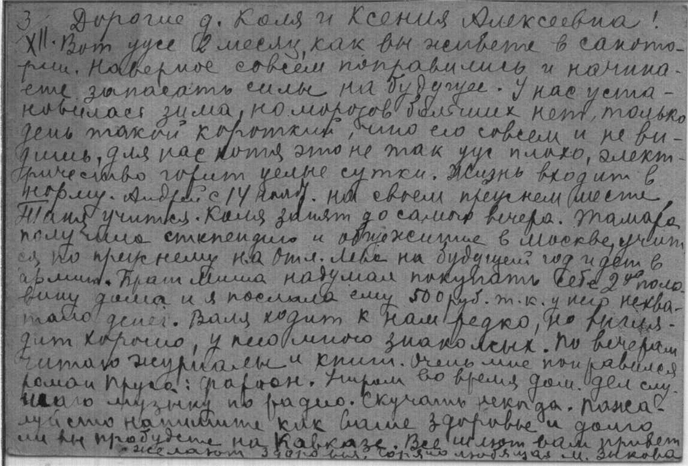 3 Дорогие д. Коля и Ксения Алексеевна!
XII. Вот уже 2 месяц, как вы живете в санато-
рии. Наверное совсем поправились и начина-
ете запасать силы на будущее. У нас уста-
новилася зима, но морозов больших нет, только
день такой короткий, что его совсем и не ви-
дишь, для нас хотя это не так уж плохо, элект-
ричество горит целые сутки. Жизнь входит в
норму. Андрей с 14 на своем прежнем месте,
Таня учится. Коля занят до самого вечера. Тамара
получила стипендию и общежитие в Москве, учит-
ся по прежнему на отл. Лева на будущей год идет в
армию. Брат Миша надумал покупать себе 2ую поло-
вину дома и я послала ему 500 руб. т.к. у него нехва-
тало денег. Валя ходит к нам редко, но выгля-
дит хорошо, у него много знакомых. По вечерам
читаю журналы и книги. Очень мне понравился
роман Пруса: Фараон. Утром во время дом. дел слу-
шаю музыку по радио. Скучать некогда. Пожа-
луйста напишите как ваше здоровье и долго
ли вы пробудете на Кавказе. Все шлют вам привет
желают здоровья. Горячо любящая М. Зыкова